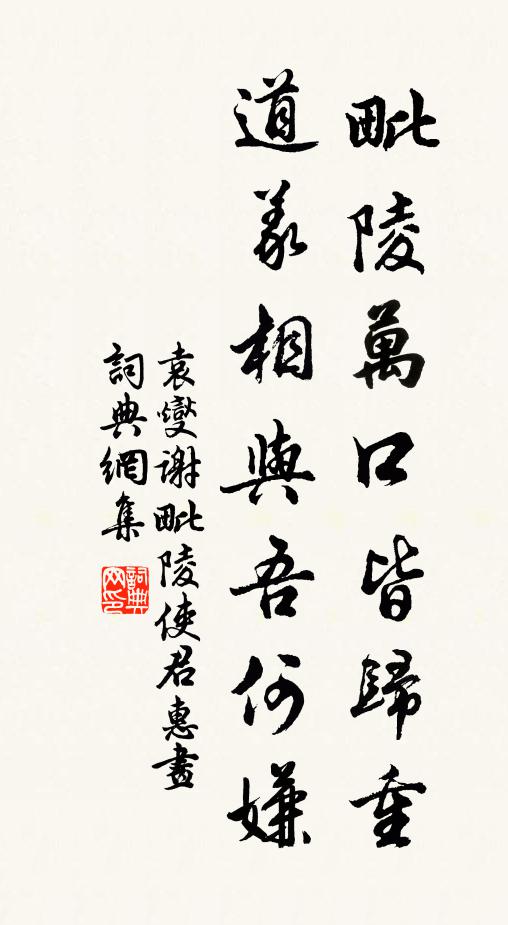 毗陵萬口皆歸重
道義相與吾何嫌
袁燮謝毗陵使君惠畫
詞典網集
詞典网印